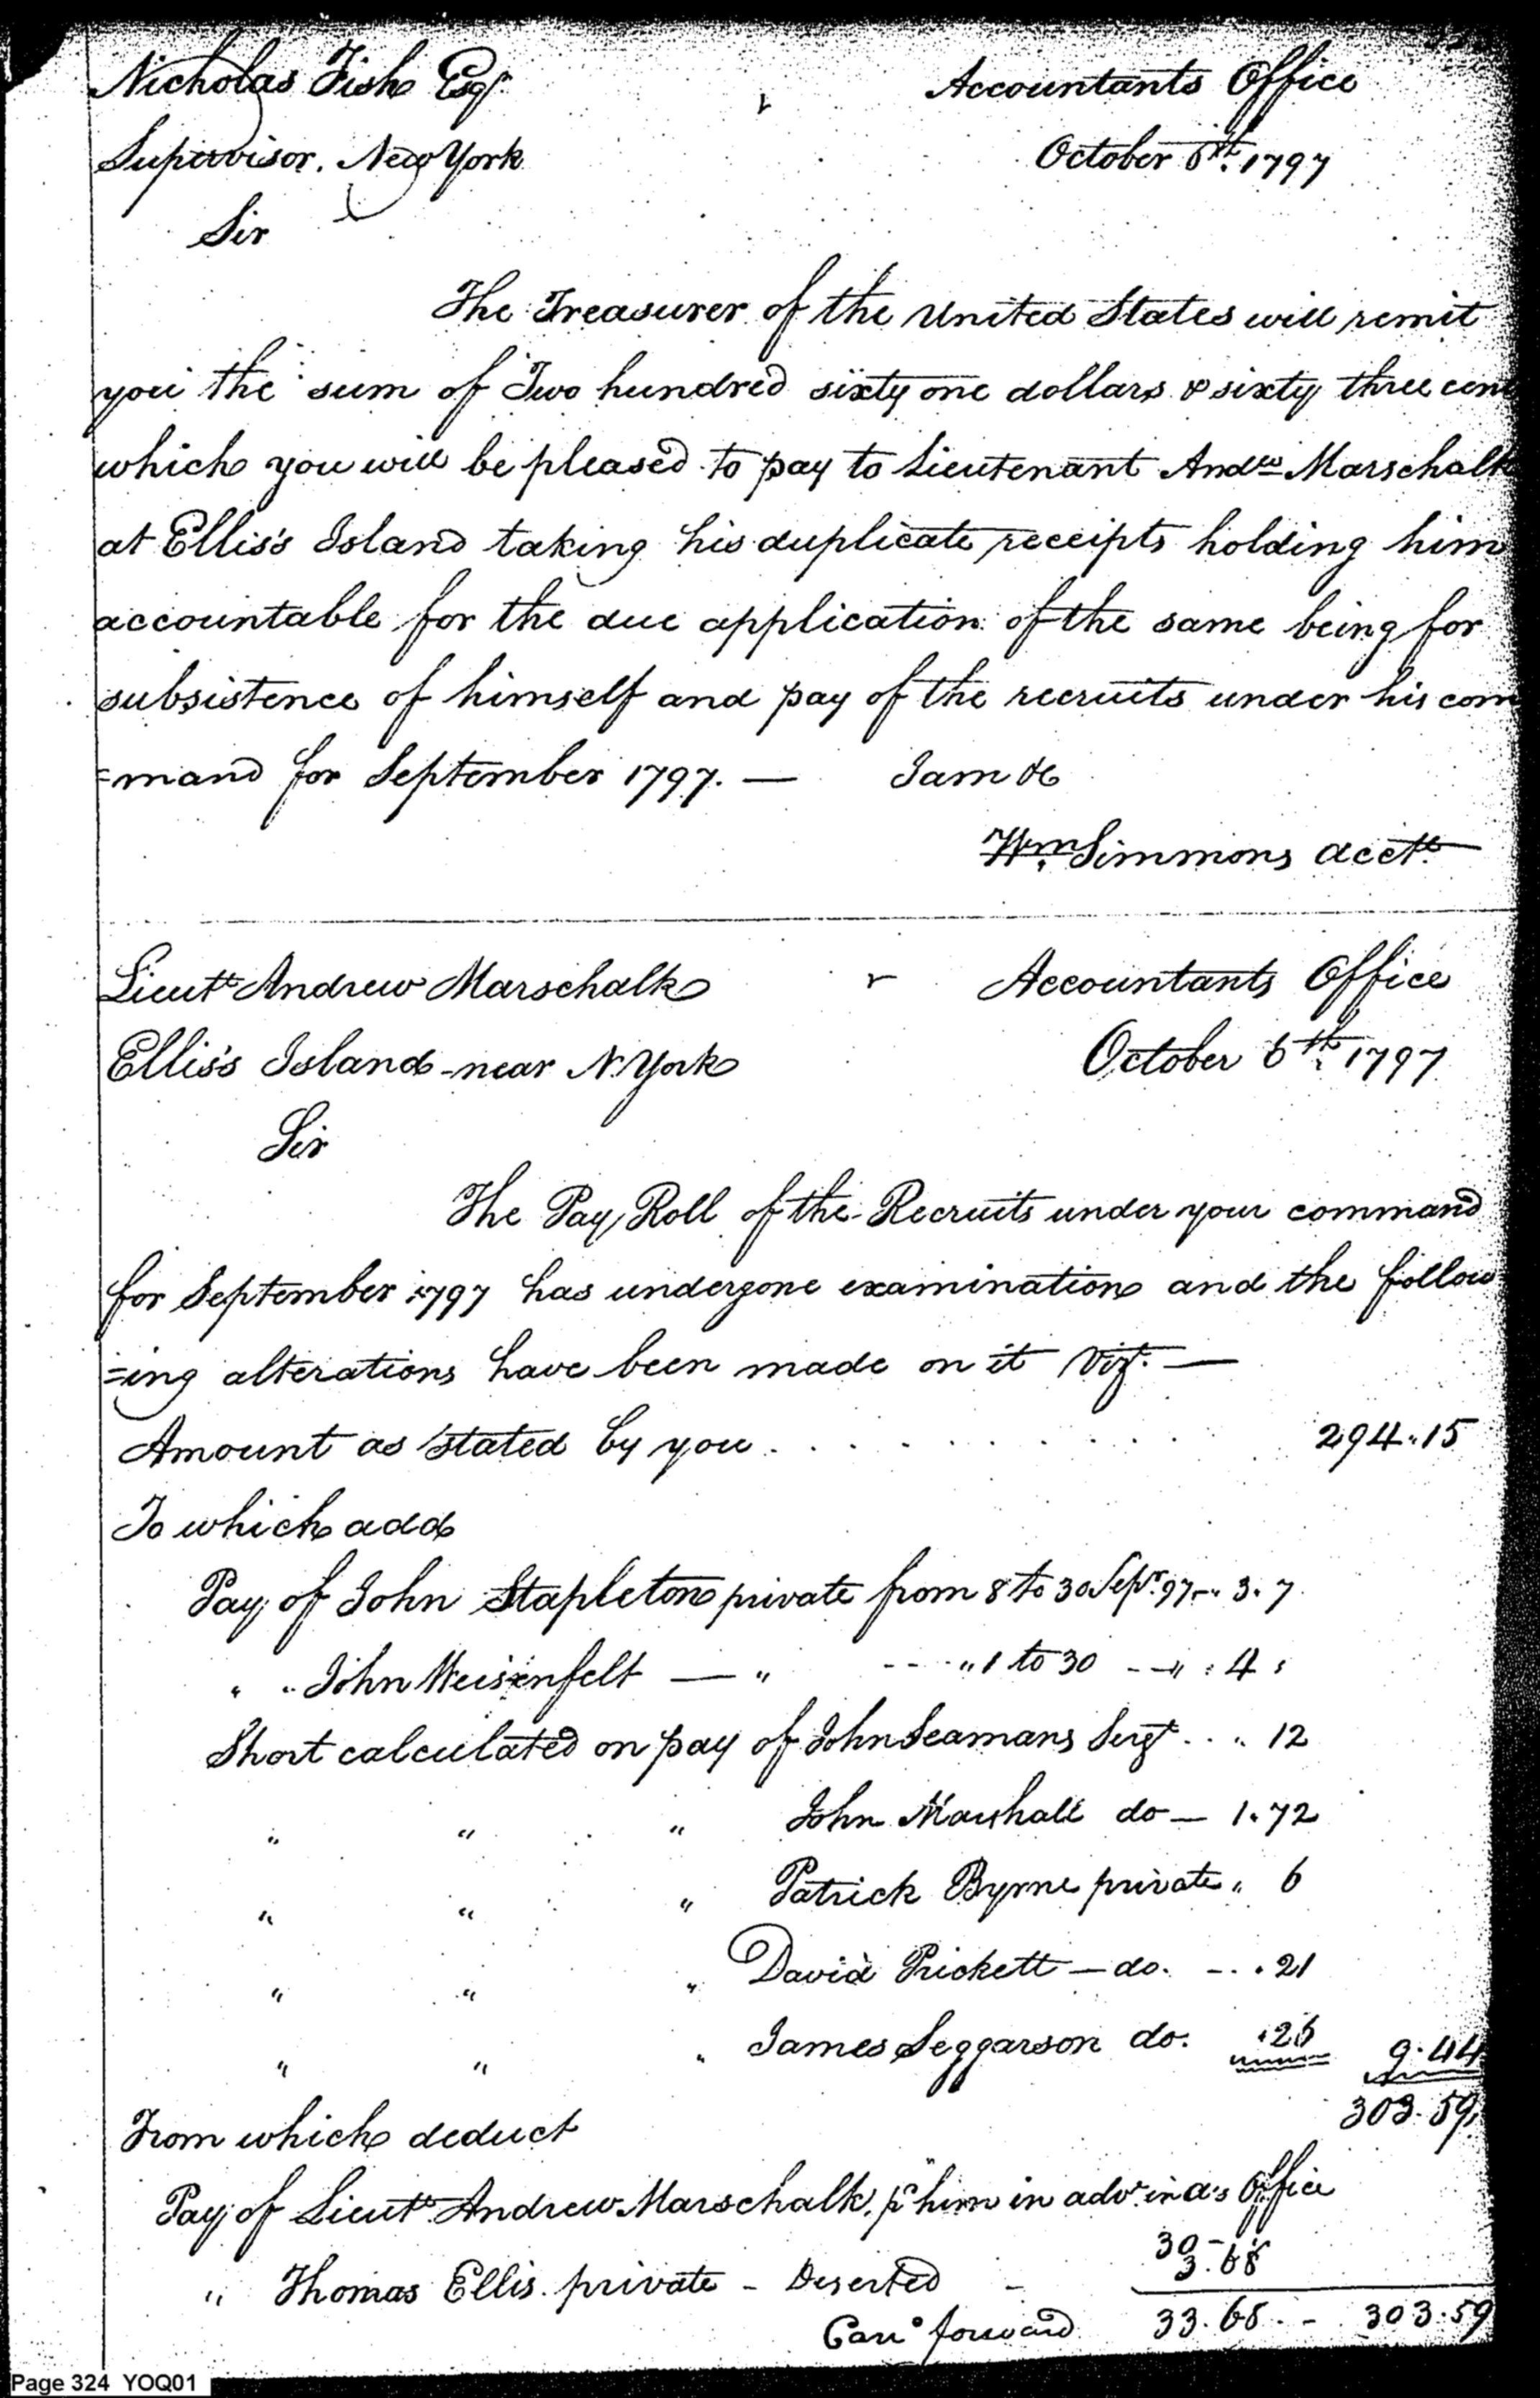 Nicholas Fish Esqr.
Accountants Office
Supervisor. New York
October 6th. 1797
Sir
The Treasurer of the United States will remit
you the sum of Two hundred sixty one dollars & sixty three cen
which you will be pleased to pay to Lieutenant Andw Marschalk
at Ellis's Island taking his duplicate receipts holding him
accountable for the due application of the same being for
subsistence of himself and pay of the recruits under his com
=mand for September 1797. — I am &c
Wm. Simmons acctt.
Lieutt Andrew Marschalk
Accountants Office
Ellis's Island - near N. York
October 6th. 1797
Sir
The Pay Roll of the Recruits under your command
for September 1797 has undergone examination and the follow
=ing alterations have been made on it Vizt. —
Amount as stated by you . . . . . . . . . . . 294..15
To which add
Pay of John Stapleton private from 8 to 30 Sepr. 97 -.. 3. 7
" " John Weisenfelt — " - - - " 1 to 30 - -" : 4 :
Short calculated on pay of John Seamans Sergt . . .. 12
" " " John Marshall do — 1.72
" " " Patrick Byrne private " 6
" " " David Prickett — do. - . . 21
" " " James Seggarson do. .26 9.44
303.59
From which deduct
Pay of Lieutt. Andrew Marschalk, pd him in advce in a's Office
30 -
" Thomas Ellis private - Deserted - 3.68
Card forward 33.68 - - 303.59
Page 324 YOQ01